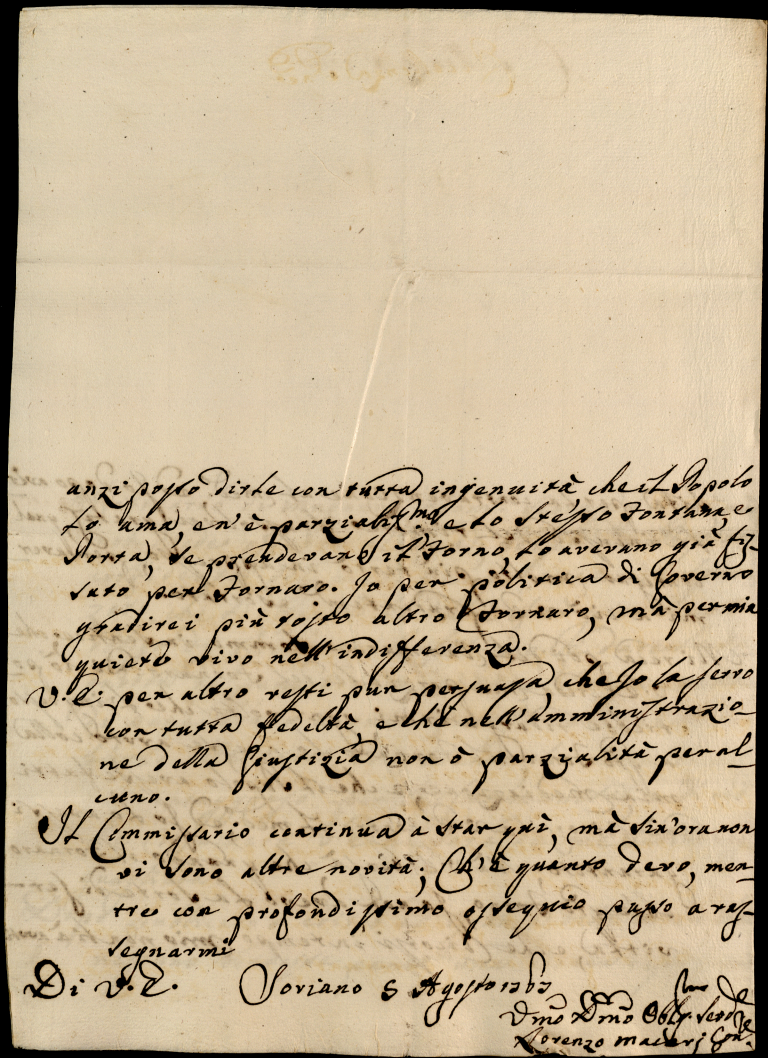 anzi posso dirle con tutta ingenuità, che il Popolo
lo ama, e n'è parzialiss.mo e lo stesso Fontana, e
Porta, se prendevano il Forno, lo avevano già fis-
sato per Fornaro. Io per politica di Governo
gradirei più tosto altro Fornaro, mà per mia
quiete vivo nell'indifferenza.
V. E. per altro resti pur persuasa, che Io la servo
con tutta fedeltà, e che nell'amministrazio-
ne della Giustizia non ò parzialità per al-
cuno.
Il Commissario continua à star quì, mà sin'ora non
vi sono altre novità; Ch'è quanto devo, men-
tre con profondissimo ossequio passo a ras-
segnarmi
Di V. E. Soriano 5 Agosto 1767
Dmo Dmo Obb. Serv
Lorenzo